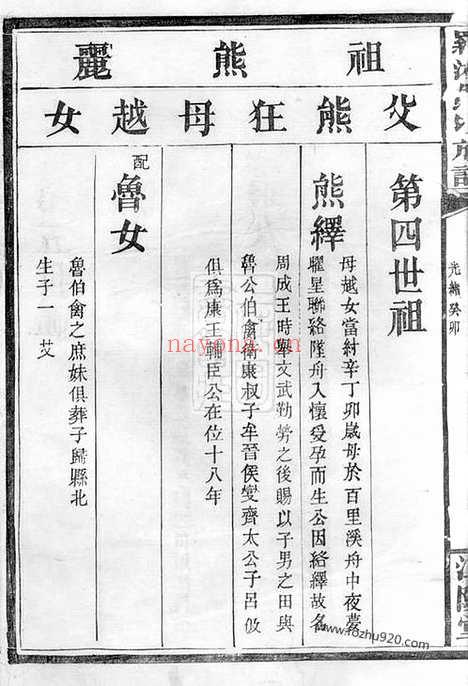 祖熊麗
父熊狂母越女
第四世祖
熊繹
母越女當紂辛丁卯歲母於百里溪舟中夜夢
曜星聯絡墜舟入懷受孕而生公因絡繹故名
周成王時舉文武勤勞之後賜以子男之田與
魯公伯禽衛康叔子牟晉侯燮齊太公子呂伋
俱爲康王輔臣公在位十八年
配
魯女
魯伯禽之庶妹俱葬子歸縣北
生子一 艾
光緒癸卯
nayona.cn
www.fozhu920.com